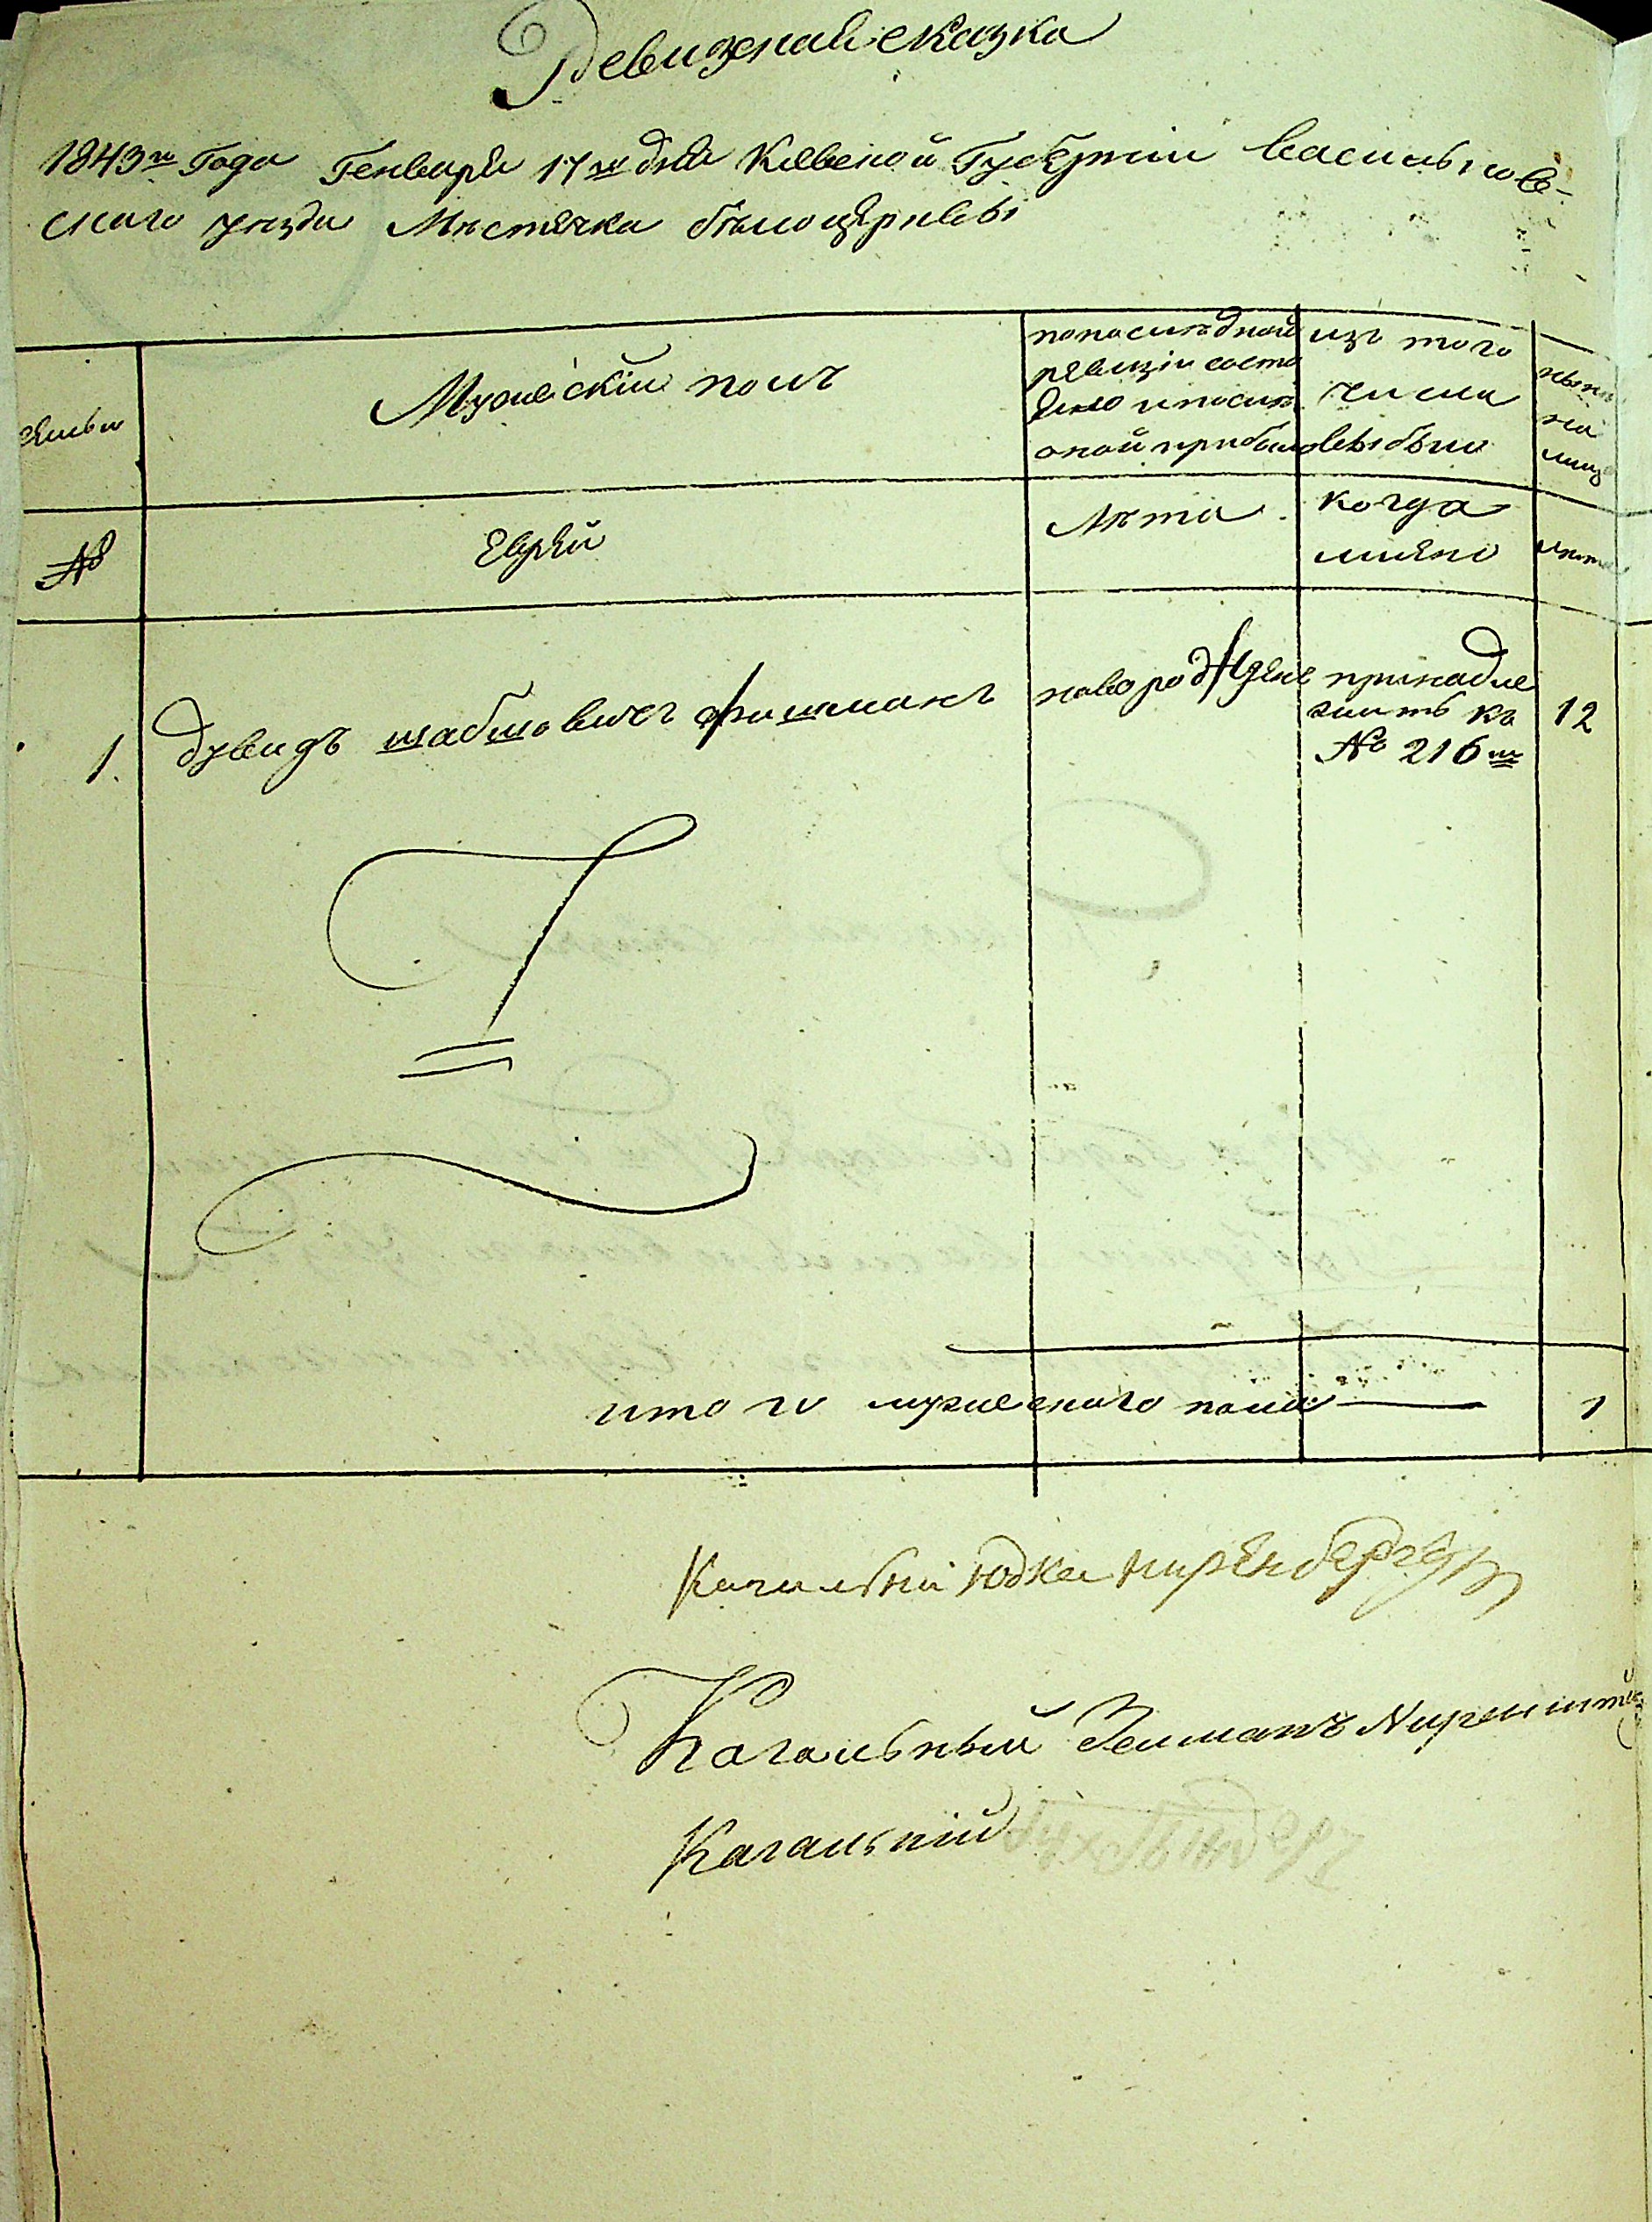 Ревизская сказка
1843го Года Генваря 17го дня Киевской Губерніи Васильков-
скаго уезда Местечка бѣлоцеркви
семьи
Мужескій полъ
по последней
ревизіи состо
яло и после
оной прибыло
изъ того
числа
выбыли
ныне
на
лицо
№
Еврей
Лѣта
когда
имяно
лета
1.
дувидъ шабшовичъ фишманъ
новорожденъ
принадле
житъ къ
№ 216му
12
итого мужескаго пола
1
Кагальни Юдка Ниренбергъ
Кагальный Зельманъ
Кагальній